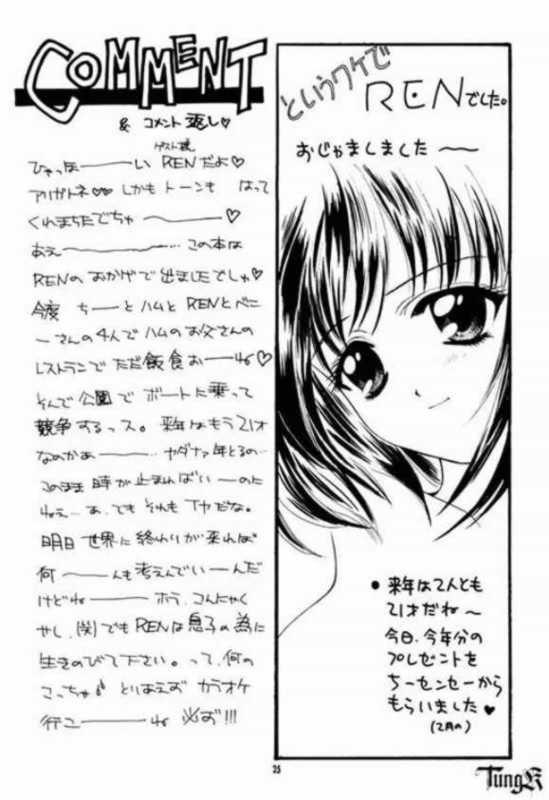 COMMENT
& コメント返し♡
ゲスト様
ひゃっほ――い RENだよ♡
アリガトネ♡♡ しかも トーンも はって
くれまちたでちゃ ――♡
あぇ――… この本は
RENの おかげで出ましたでしゅ♡
今度 ちーとハムと RENとべに
ーさんの4人で ハムの お父さんの
レストランで ただ飯食おーね♡
そんで 公園で ボートに乗って
競争するっス。来年はもう21才
なのかあ――… ヤダナァ年とるの…
このまま 時が止まればいーのに
ねぇ… あ、でも それも イヤだな。
明日 世界に終わりが来れば
何――んも考えんでいーんだ
けどねー―― ホラ、こんにゃく
やし、(関)でも RENは息子の為に
生きのびて下さい。って、何の
こっちゃ とりあえず カラオケ
行こ――ね 必ず!!!
というワケで
RENでした。
おじゃましました ～
• 来年は2人とも
21才だね～
今日、今年分の
プレゼントを
ちーセンセーから
もらいました♥
(2月の)
25
TungK